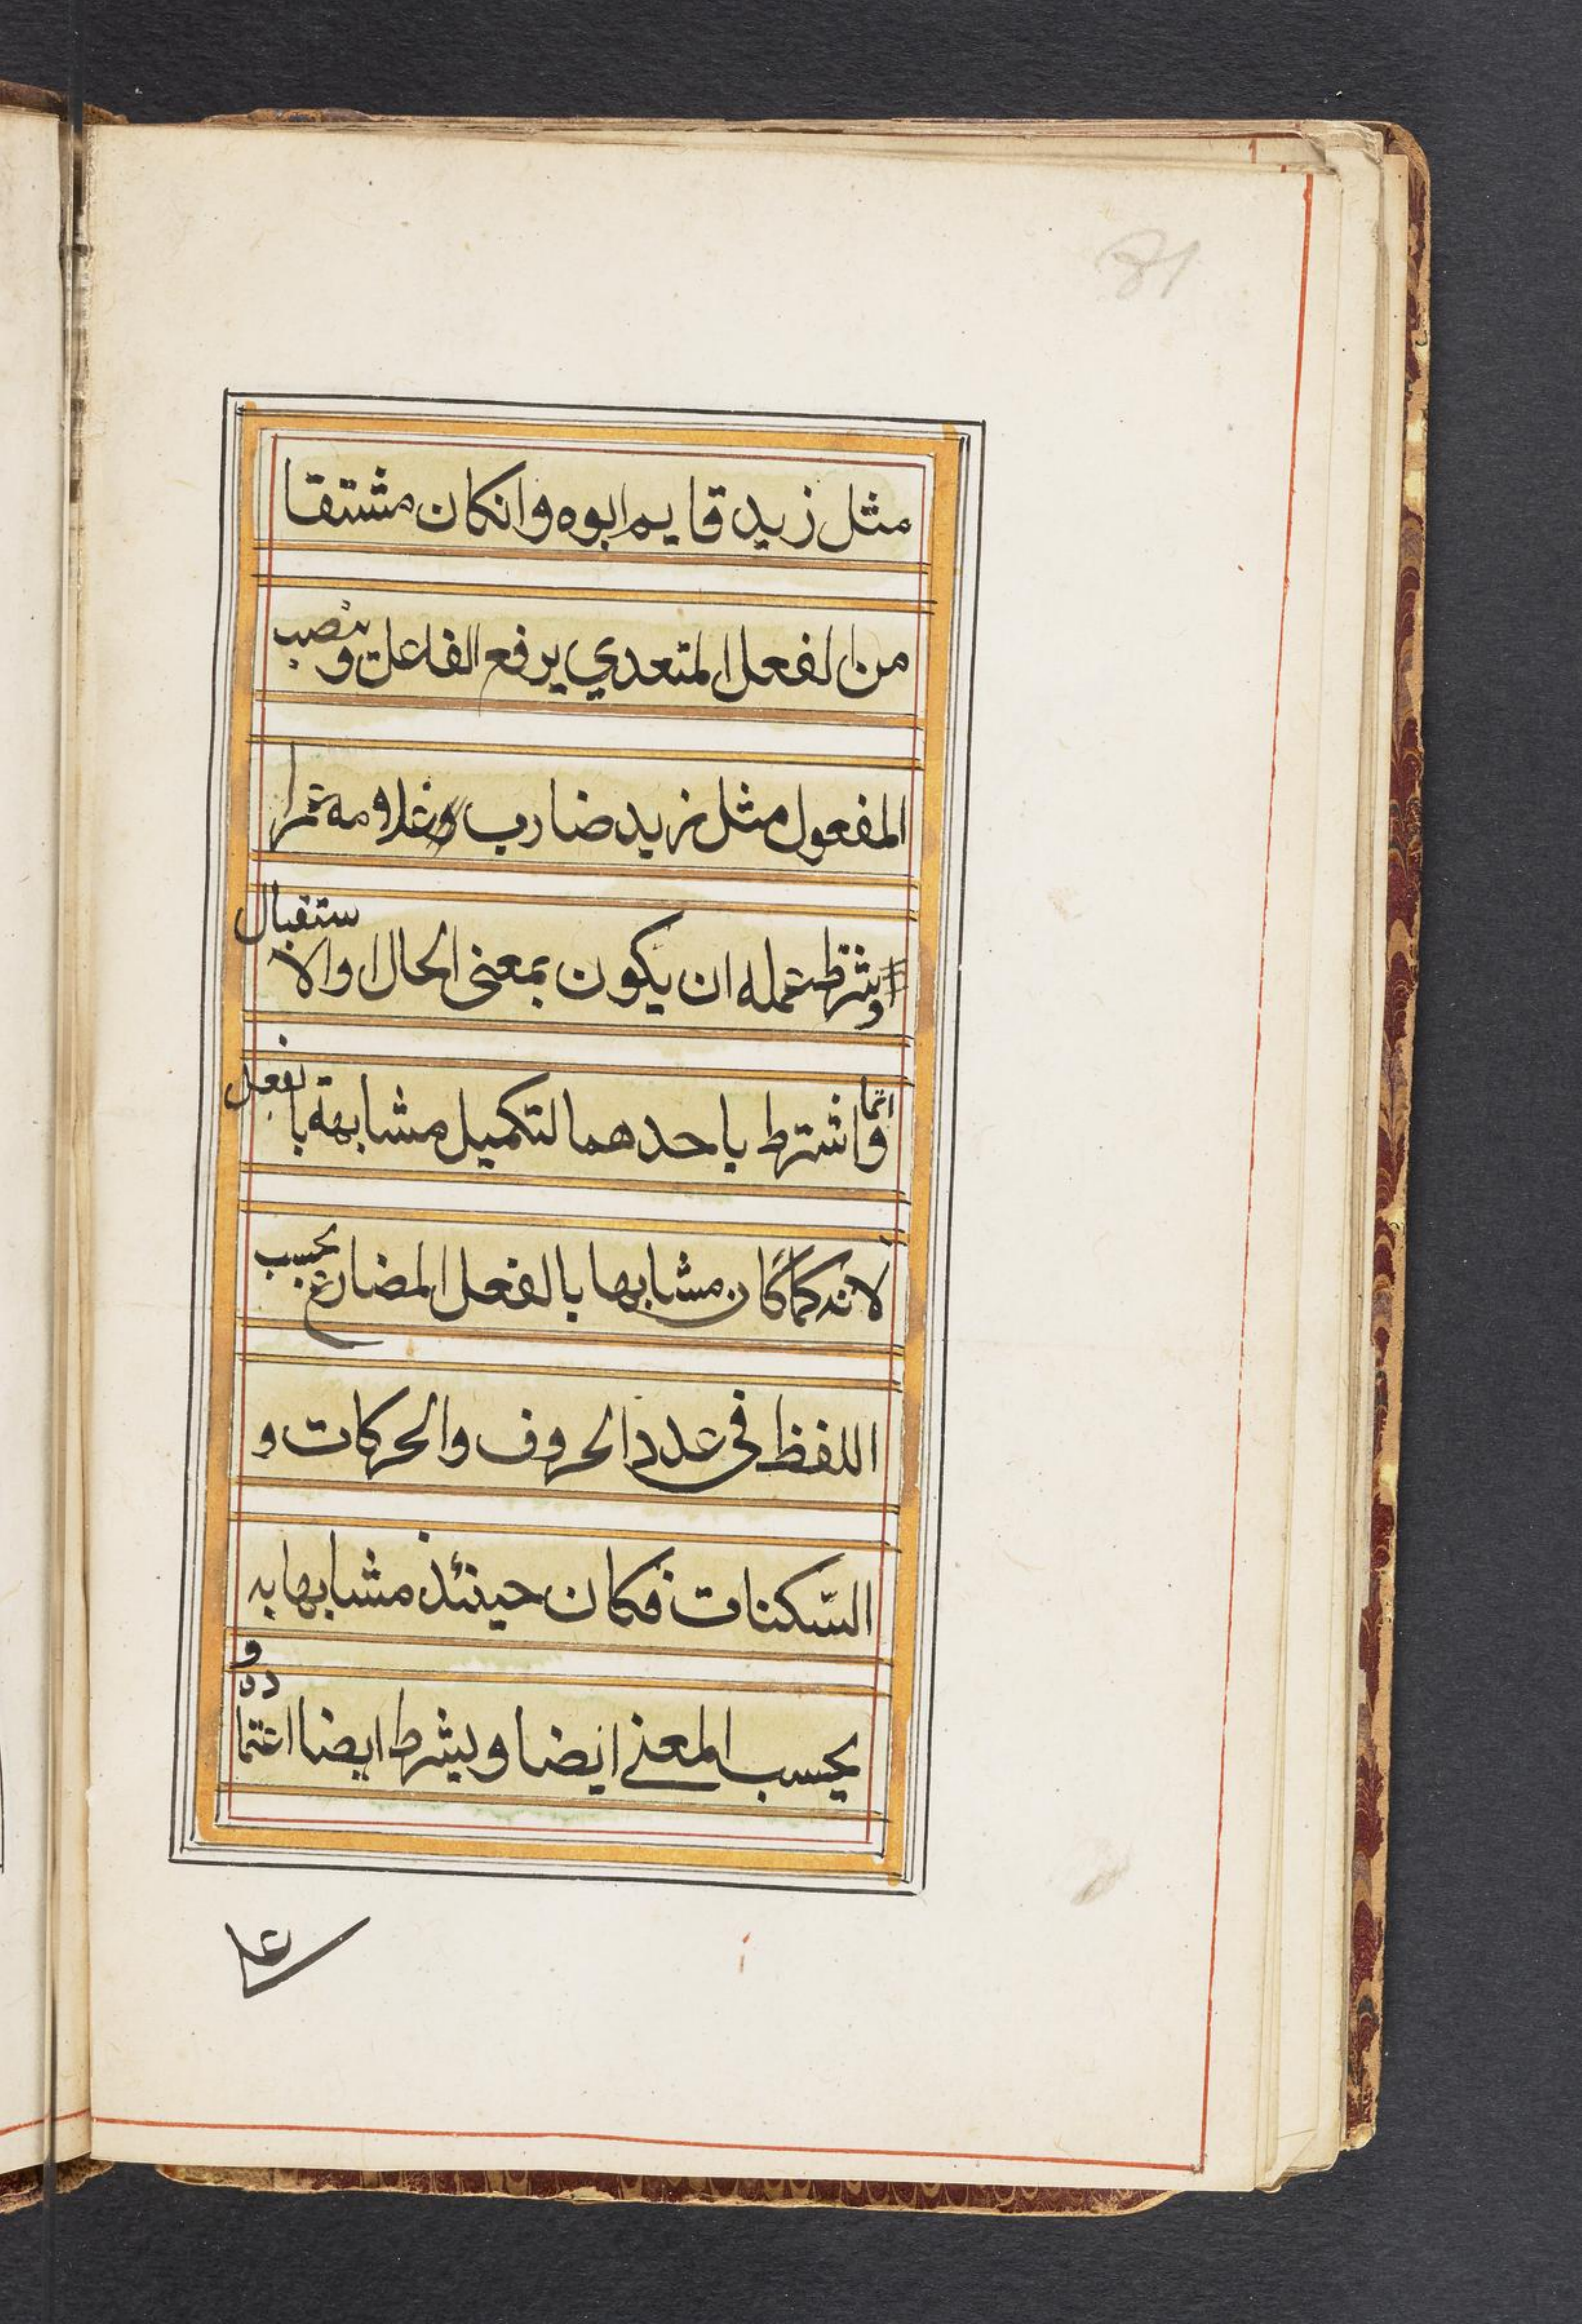 81
مثل زيد قايم ابوه وانكان مشتقا
من الفعل المتعدي يرفع الفاعل وينصب
المفعول مثل زيد ضارب وغلامه عمرا
وشرط عمله ان يكون بمعنى الحال او الاستقبال
وانما اشترط باحدهما لتكميل مشابهة بالفعل
لانه كما كان مشابها بالفعل المضارع بحسب
اللفظ فى عدد الحروف والحركات و
السّكنات فكان حينئذ مشابها به
بحسب المعنى ايضا ويشرط ايضا اعتماده و